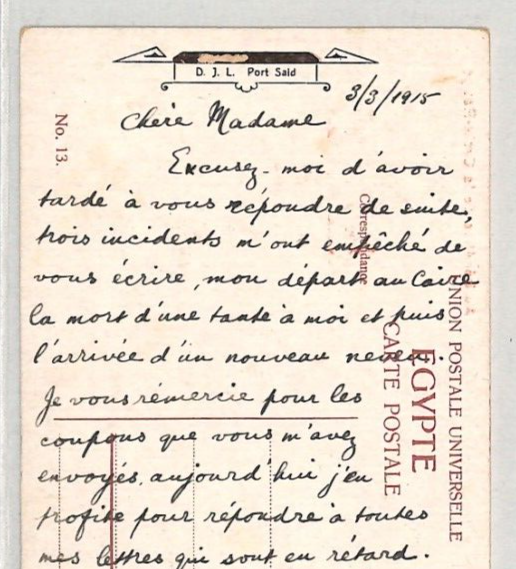 D. J. L. Port Said
3/3/1915
No. 13.
Chére Madame
Excusez-moi d'avoir
tardé à vous répondre de suite,
trois incidents m'ont empêché de
vous écrire, mon départ au Caire
la mort d'une tante à moi et puis
l'arrivée d'un nouveau neveu.
Je vous rémercie pour les
coupons que vous m'avez
envoyés, aujourd'hui j'en
profite pour répondre à toutes
mes lettres qui sont en rétard.
Correspondance
UNION POSTALE UNIVERSELLE
EGYPTE
CARTE POSTALE